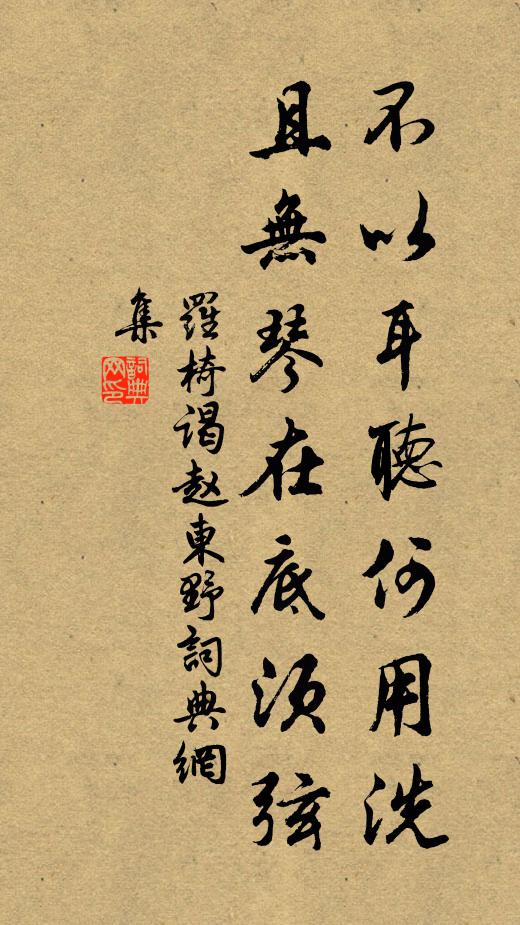 不以耳聽何用洗
且無琴在底須弦
羅椅謁赵東野詞典網
集
詞典网印